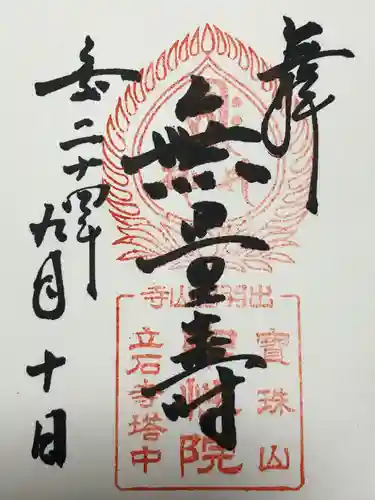 奉拝
無量壽
二十四年九月十日
出羽国山寺
寶珠山
院
立石寺塔中